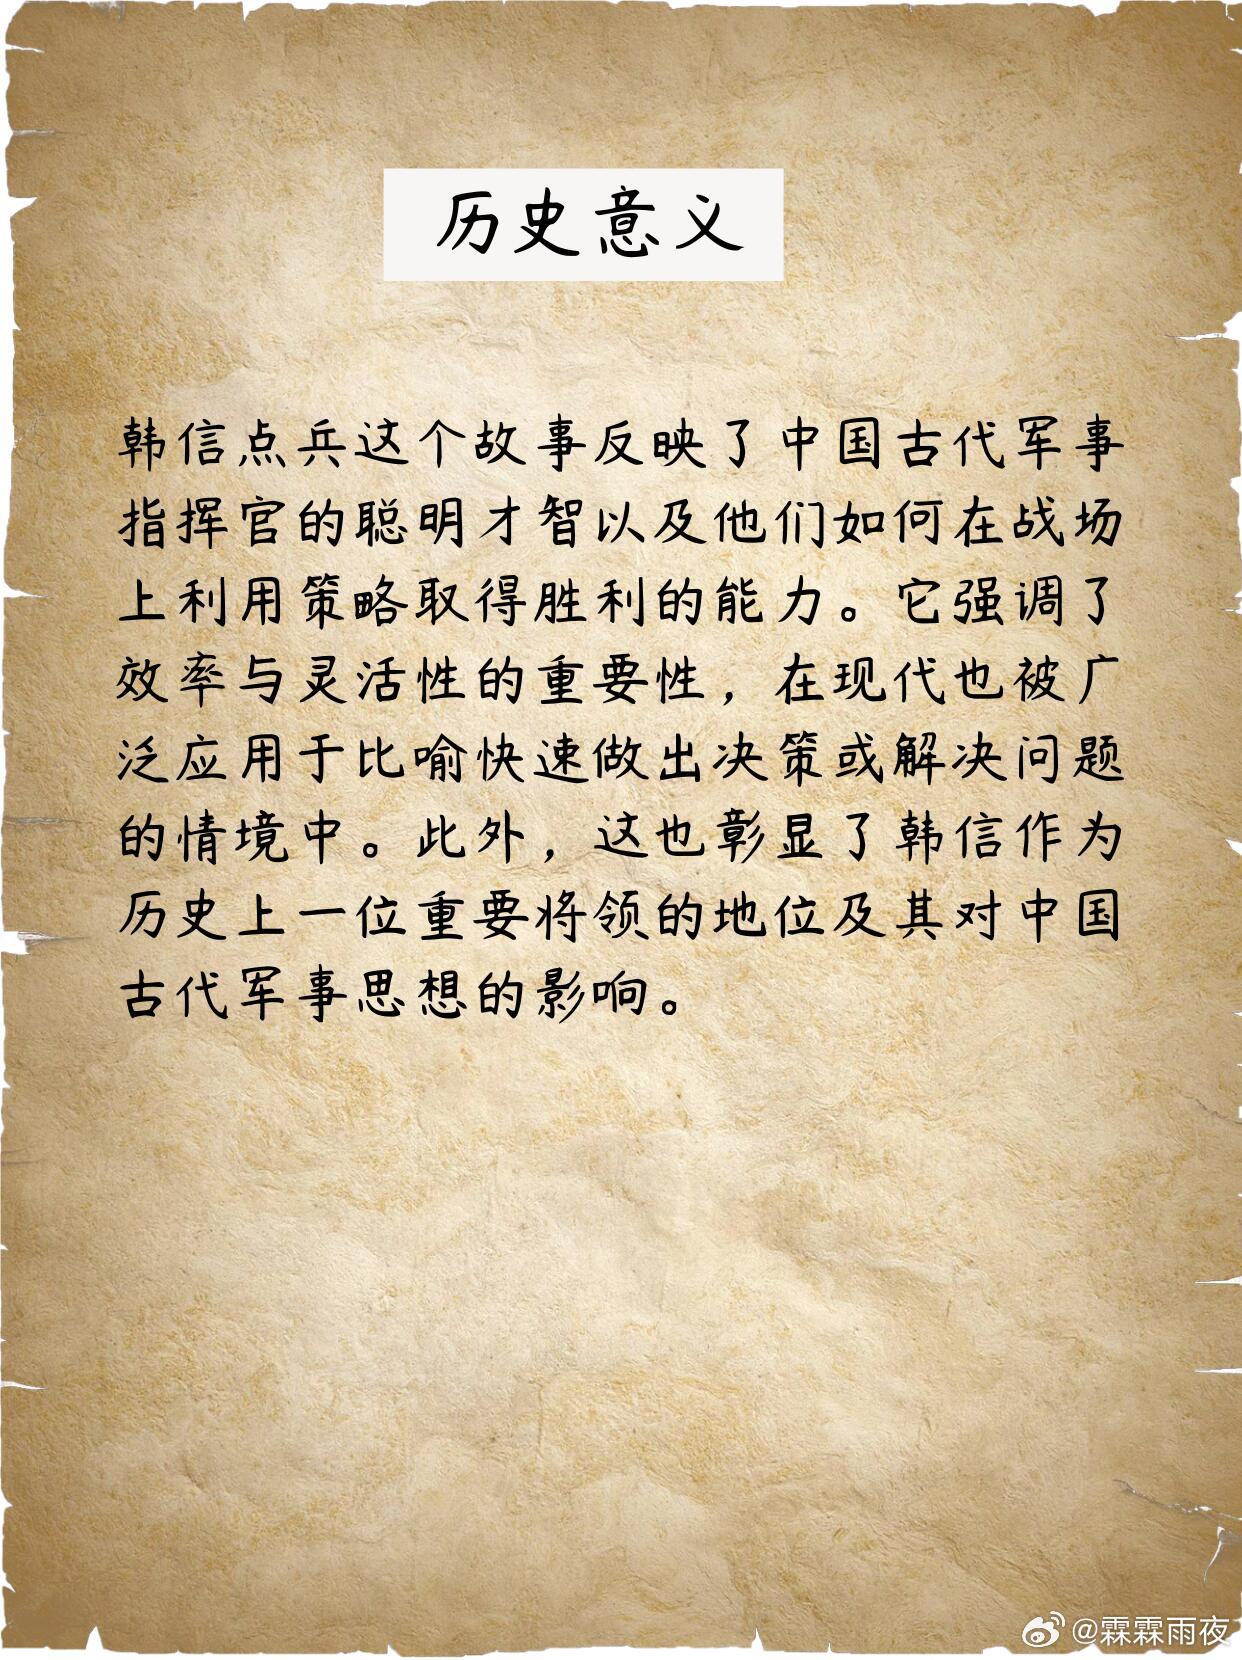 历史意义
韩信点兵这个故事反映了中国古代军事
指挥官的聪明才智以及他们如何在战场
上利用策略取得胜利的能力。它强调了
效率与灵活性的重要性，在现代也被广
泛应用于比喻快速做出决策或解决问题
的情境中。此外，这也彰显了韩信作为
历史上一位重要将领的地位及其对中国
古代军事思想的影响。
@霖霖雨夜